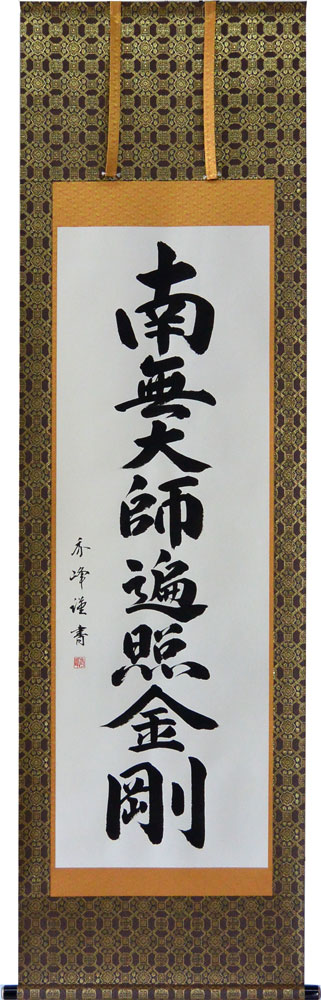 南無大師遍照金剛
峰謹書